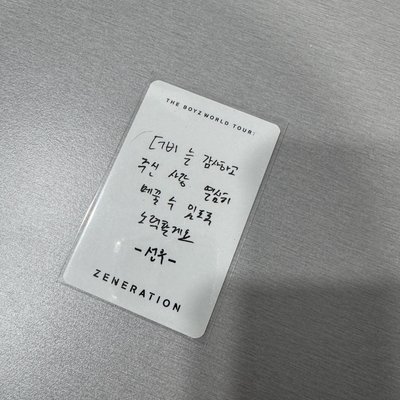 THE BOYZ WORLD TOUR :
더비 늘 감사하고
주신 사랑 열심히
메꿀 수 있도록
노력할게요
-선우-
ZENERATION